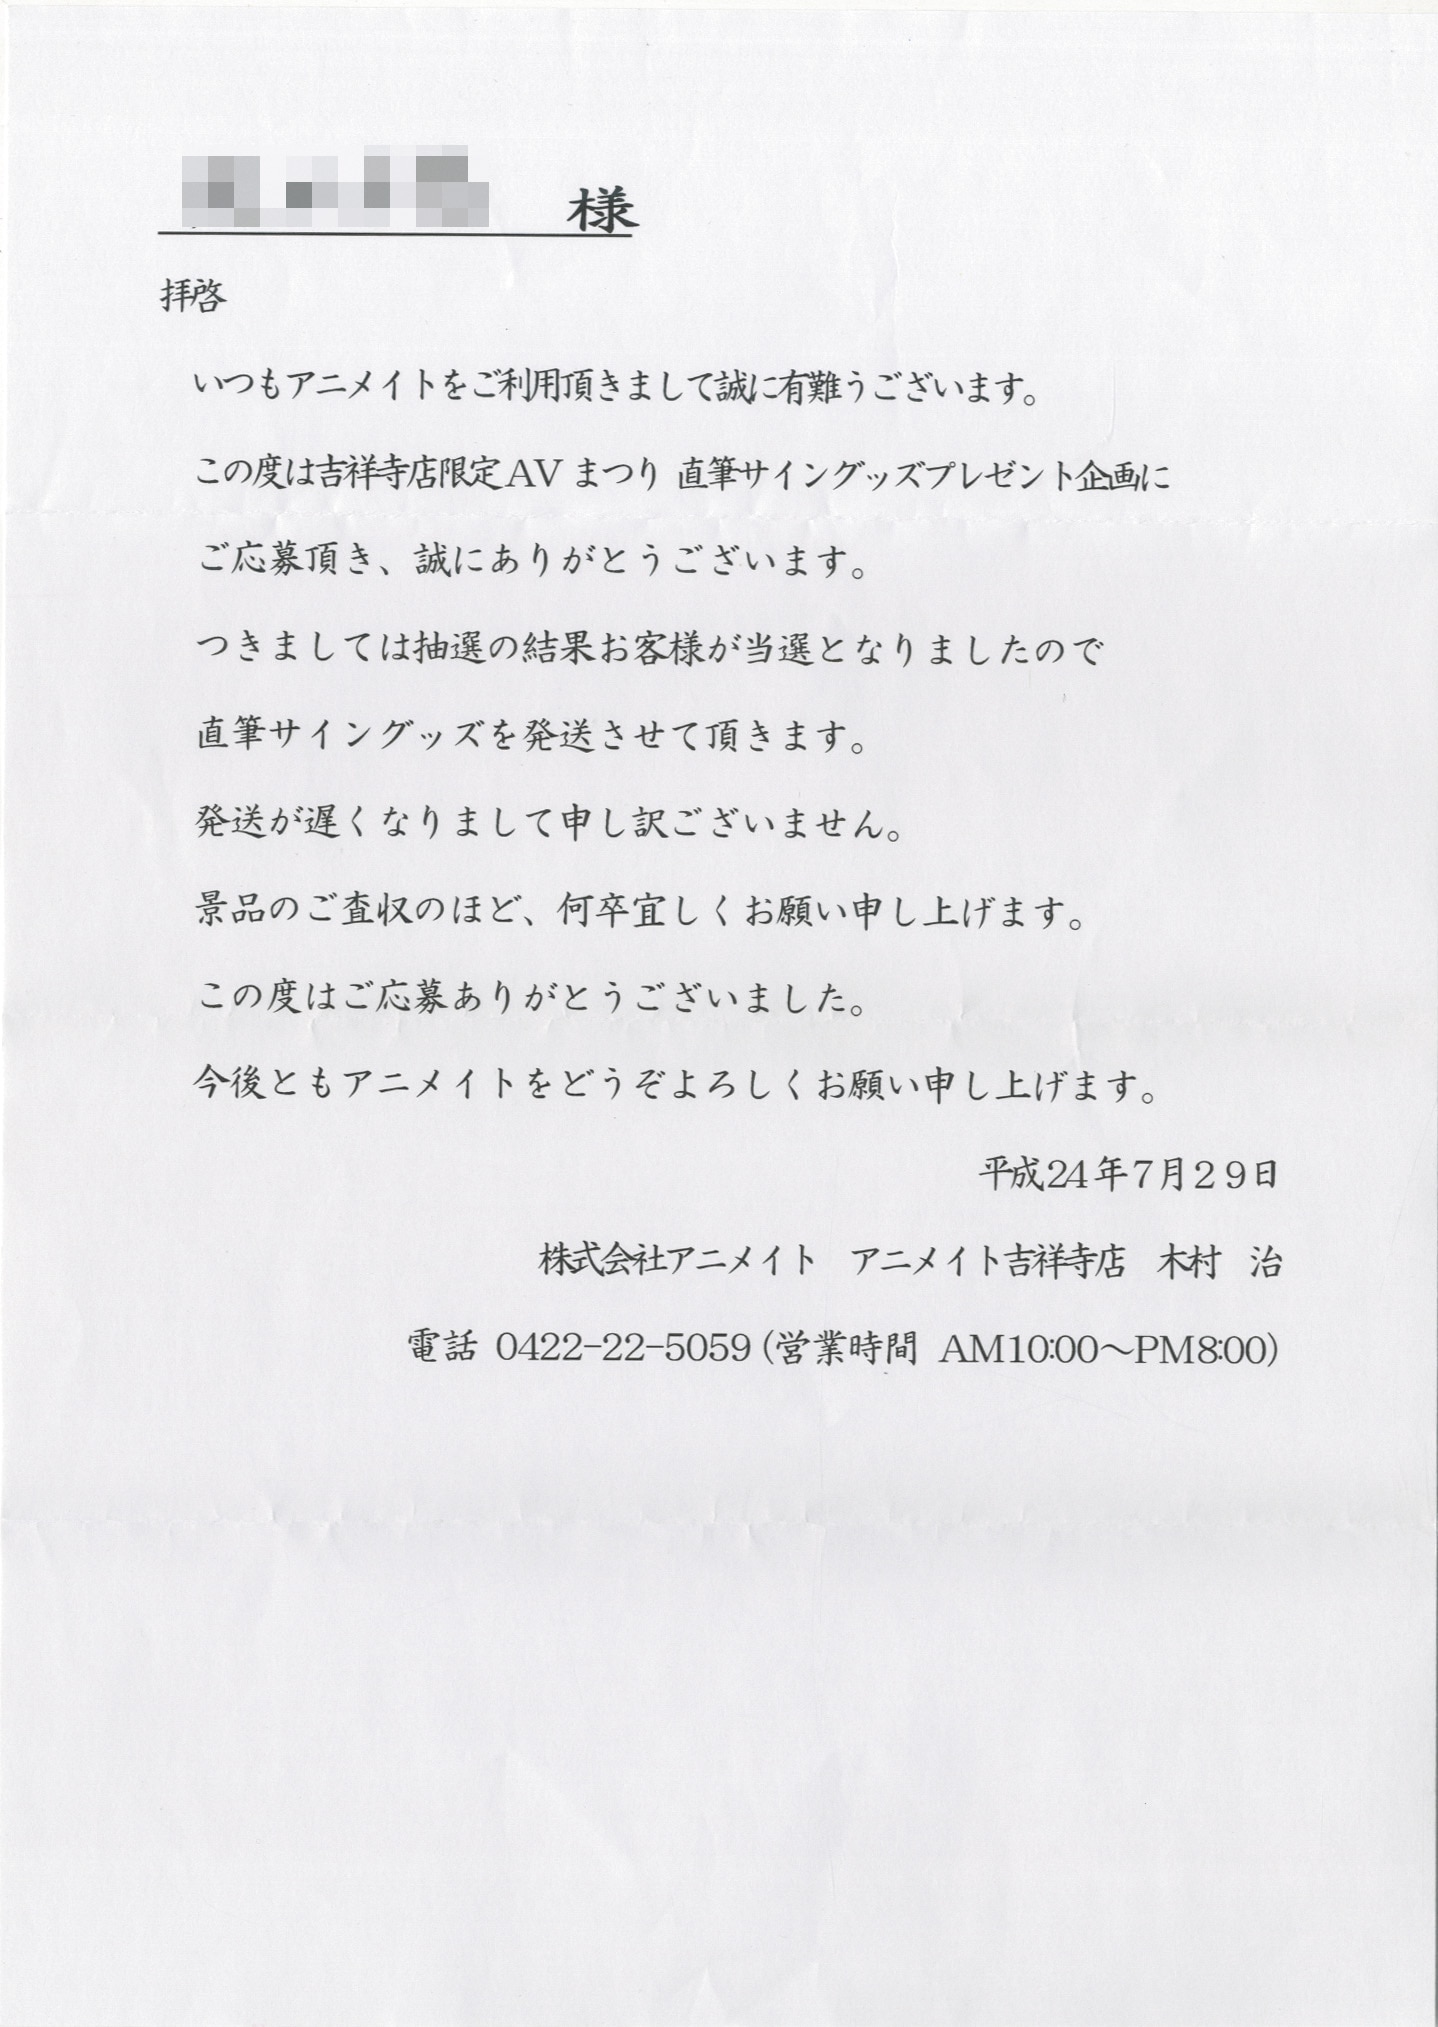 様
拝啓
いつもアニメイトをご利用頂きまして誠に有難うございます。
この度は吉祥寺店限定AV まつり 直筆サイングッズプレゼント企画に
ご応募頂き、誠にありがとうございます。
つきましては抽選の結果お客様が当選となりましたので
直筆サイングッズを発送させて頂きます。
発送が遅くなりまして申し訳ございません。
景品のご査収のほど、何卒宜しくお願い申し上げます。
この度はご応募ありがとうございました。
今後ともアニメイトをどうぞよろしくお願い申し上げます。
平成24年7月29日
株式会社アニメイト　アニメイト吉祥寺店　木村　治
電話 0422-22-5059(営業時間 AM10:00～PM8:00)